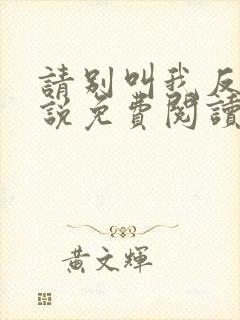 請別叫我反
說免費閱讀
黃文輝